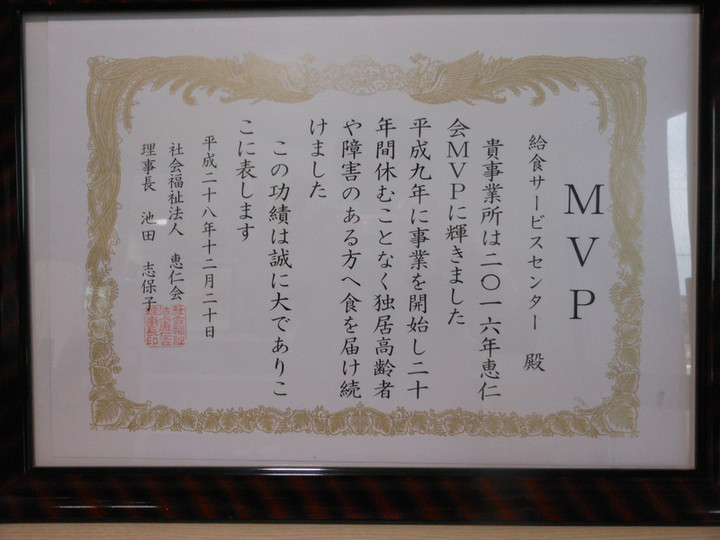 MVP
給食サービスセンター 殿
貴事業所は二〇一六年恵仁
会MVPに輝きました
平成九年に事業を開始し二十
年間休むことなく独居高齢者
や障害のある方へ食を届け続
けました
この功績は誠に大でありこ
こに表します
平成二十八年十二月二十日
社会福祉法人 恵仁会
理事長 池田 志保子